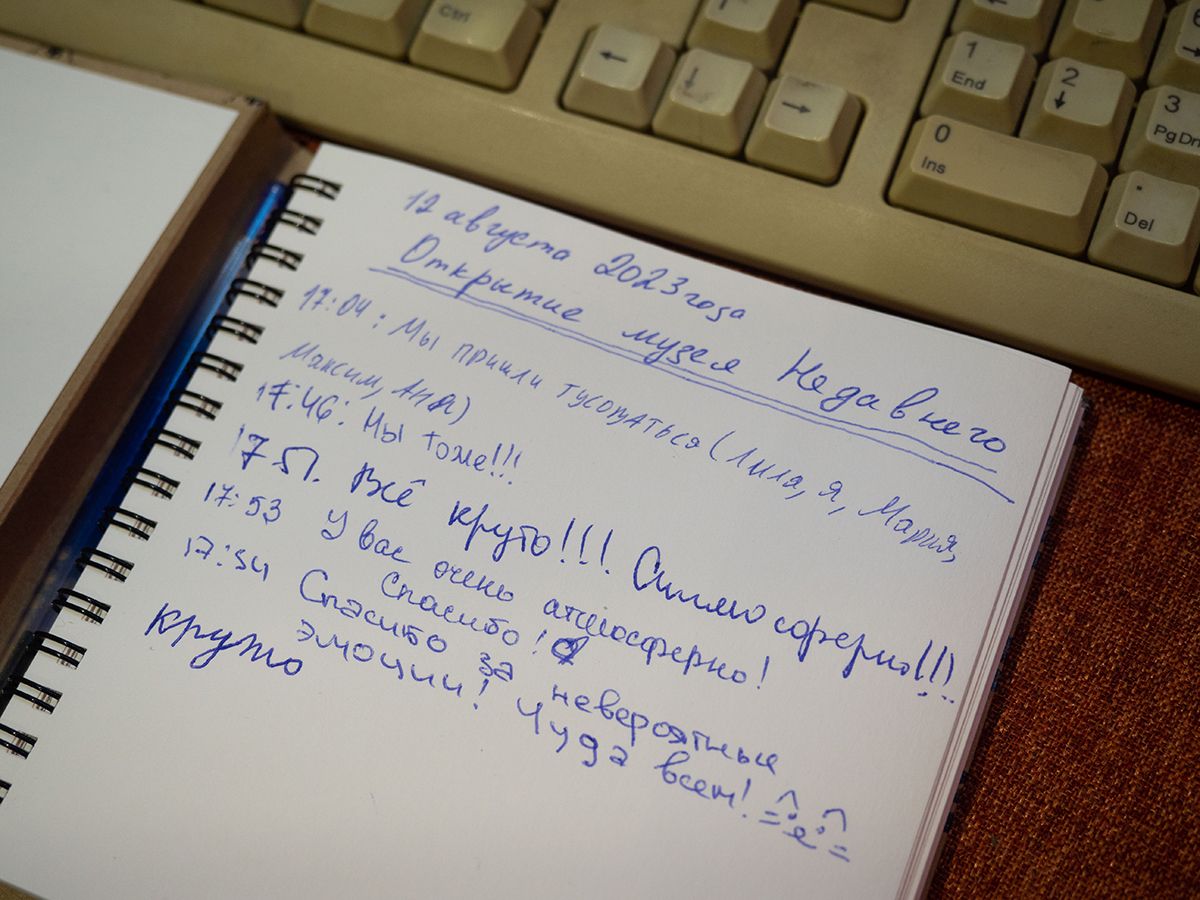 Ctrl
←
↓
→
1
End
2
↓
3
PgDn
0
Ins
.
Del
12 августа 2023 года
Открытие музея Недавнего
17:04: Мы пришли тусоваться (Лиля, я, Мария,
Максим, Аня)
17:46: Мы тоже!!!
17 51. Всё круто!!! Атмосферно!!!
17:53 У вас очень атмосферно!
Спасибо!
17:54 Спасибо за невероятные
эмоции! Чуда всем!
круто